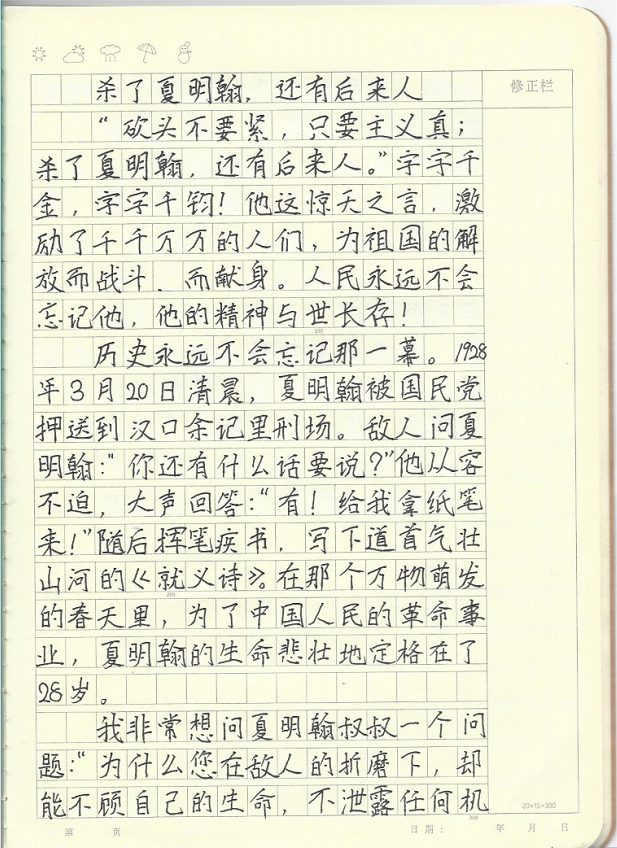 修正栏
杀了夏明翰，还有后来人
“砍头不要紧，只要主义真；
杀了夏明翰，还有后来人。”字字千
金，字字千钧！他这惊天之言，激
励了千千万万的人们，为祖国的解
放而战斗．而献身。人民永远不会
忘记他，他的精神与世长存！
100
历史永远不会忘记那一幕。1928
年3月20日清晨，夏明翰被国民党
押送到汉口余记里刑场。敌人问夏
明翰：“你还有什么话要说？”他从容
不迫，大声回答：“有！给我拿纸笔
来！”随后挥笔疾书，写下道首气壮
山河的《就义诗》。在那个万物萌发
200
的春天里，为了中国人民的革命事
业，夏明翰的生命悲壮地定格在了
28岁。
我非常想问夏明翰叔叔一个问
题：“为什么您在敌人的折磨下，却
能不顾自己的生命，不泄露任何机
300
20×15=300
第 页
日期： 年 月 日